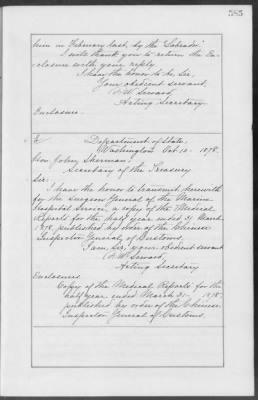 585
him in February last, by the "Labrador".
I will thank you to return the En-
closure with your reply.
I have the honor to be, Sir,
Your obedient servant,
F. W. Seward,
Acting Secretary.
Enclosure.
Department of State,
Washington Oct 10. 1878.
Hon John Sherman.
Secretary of the Treasury
Sir:
I have the honor to transmit, herewith
for the Surgeon General of the Marine
Hospital Service, a copy of the Medical
Reports for the half year ended 31 March
1878, published by order of the Chinese
Inspector General of Customs.
I am, Sir, your obedient servant
F. W. Seward,
Acting Secretary
Enclosures
Copy of the Medical Reports for the
half year ended March 31- 1878.
published by order of the Chinese
Inspector General of Customs.